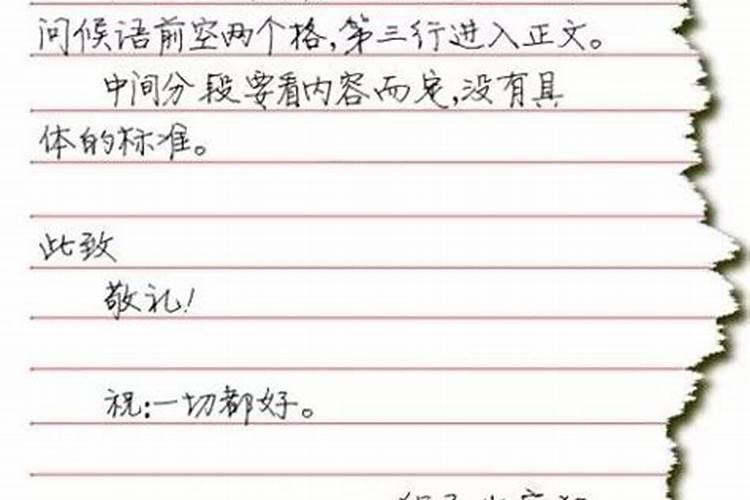 问候语前空两个格,第三行进入正文。
中间分段要看内容而定,没有具
体的标准。
此致
敬礼!
祝:一切都好。